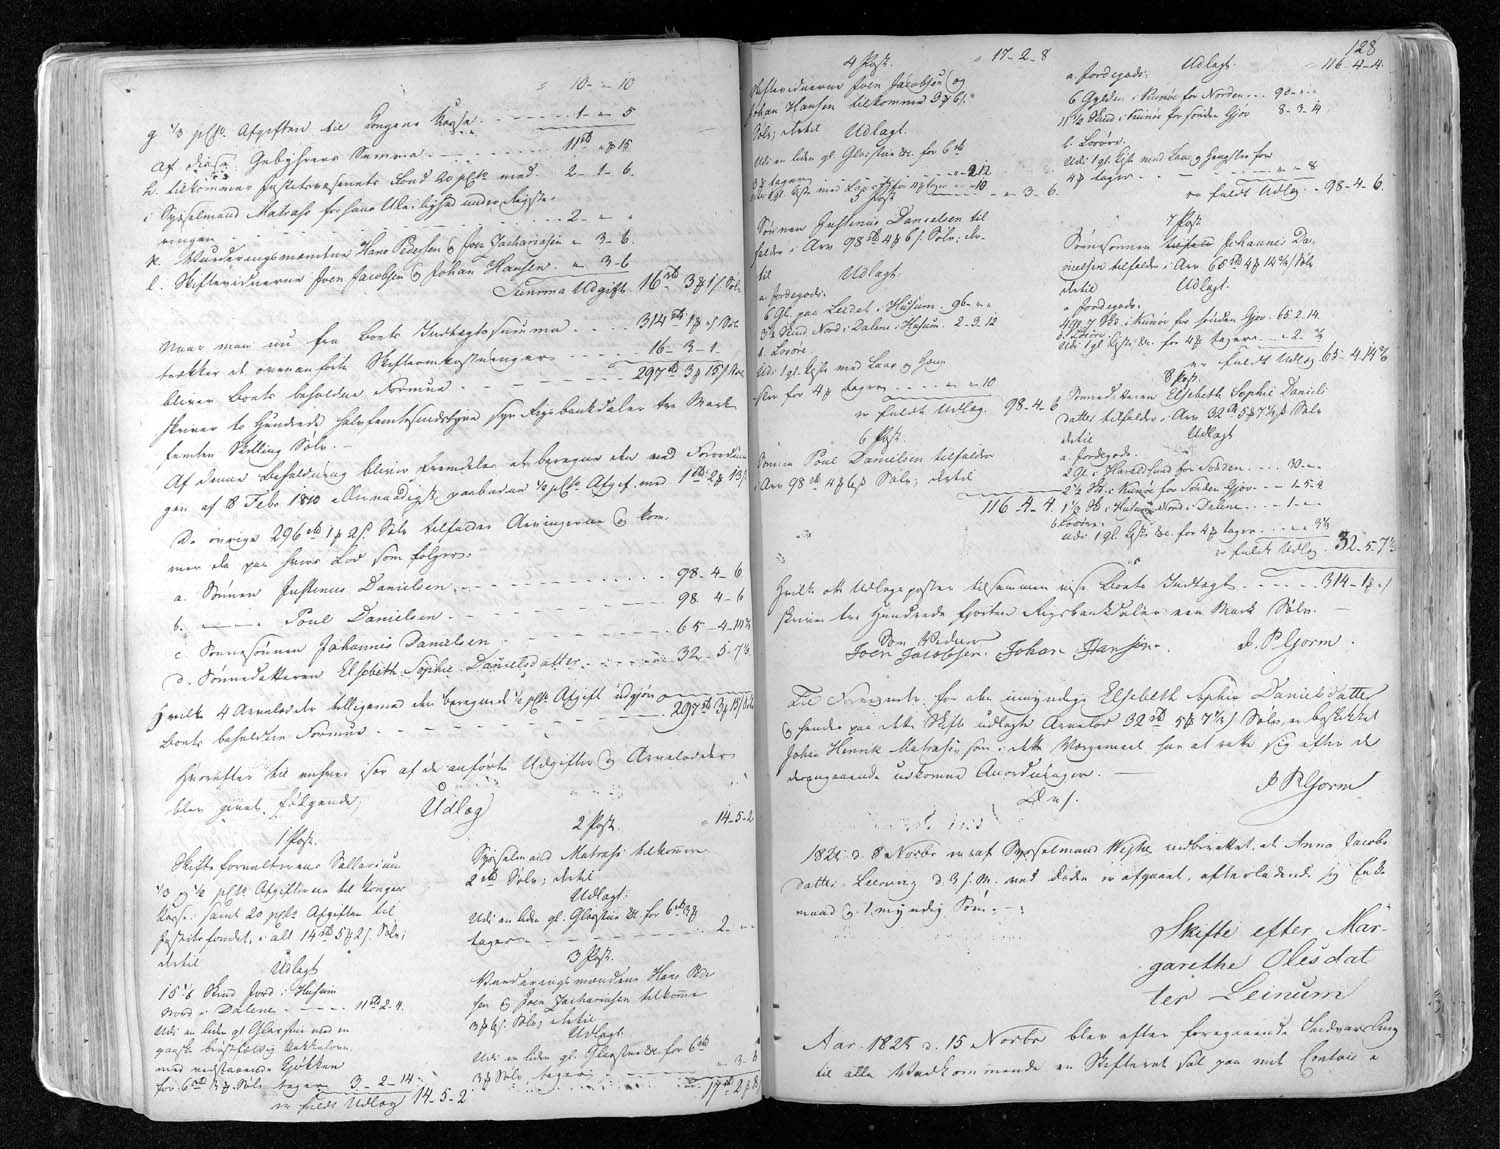 " 10 - " - 10
g 1/3 pCto Afgiften til Kongens Kasse - - - 1 - " - 5
Af disse Gebyhrers Summa - - - 11 rd " ß 15
h. tilkommer Justitsvesenets Fond 20 pCto med - 2 - 1 - 6.
i Sysselmand Matras for hans Uleilighed under Registe-
ringen - - - 2 - " - "
k. Vurderingsmændene Hans Pedersen og Joen Zachariasen " 3 - 6.
l. Skiftevidnerne Joen Jacobsen og Johan Hansen. " 3 - 6
Summa Udgift 16 rd 3 ß 1 s. Sølv
Naar man nu fra Boets Indtægtssumma - - - 314 rd 1 ß " s Sølv
trækker de ovenanførte Skifteomkostninger - - 16 - 3 - 1 -
bliver Boets beholdne Formue - - - 297 rd 3 ß 15 s Sølv
skriver to Hundrede halvfemtesindstyve syv Rigsbankdaler tre Mark
femten Skilling Sølv. -
Af denne Beholdning bliver fremdeles at beregne den ved Forordnin
gen af 8 Febr 1810 allernaadigst paabudne 1/2 pCto Afgift, med 1 rd 2 ß 13 s.
De øvrige 296 rd 1 ß 2 s. Sølv tilfalder Arvingerne og kom-
mer da paa hvers Lod som følger:
a. Sønnen Justinus Danielsen, - - - 98 - 4 - 6
b. ——— Poul Danielsen. - - - 98 4 - 6
c. Sønnesønnen Johannis Danielsen - - - 65 - 4 - 14 2/3
d. Sønnedatteren Elsebeth Sophie Danielsdatter - - - 32 - 5 - 7 1/3
Hvilke 4 Arvelodder tilligemed den beregnede 1/2 pCto Afgift udgjør
Boets beholdne Formue - - - 297 rd 3 ß 15 s Sølv
Hvorefter til enhver især af de anførte Udgifter og Arvelodder
blev givet følgende
Udlæg
1 Post.
Skifteforvalterens Sallarium
1/3 og 1/2 pCto Afgifterne til Kongens
Kasse samt 20 pCto Afgiften til
Justitsfondet, i alt 14 rd 5 ß 2 s. Sølv;
dertil
Udlagt
15 1/6 Skind Jord i Husum
Nord i Dalene - - - 11 rd 2 - 4.
Udi en liden gl Glasstue med en
ganske brøstfældig Kakkelovn
med nedstaaende Gjøtten
for 6 rd 3 ß Sølv tager 3 - 2 - 14
er fuldt Udlæg 14 - 5 - 2
2 Post. " 14 - 5 - 2
Sysselmand Matras tilkommer
2 rd Sølv; dertil
Udlagt.
Udi en liden gl. Glasstue &c. for 6 rd 3 ß
tager - - - 2 - " - "
3 Post.
Vurderingsmændene Hans Peder
sen og Joen Zachariasen tilkomme
3 ß 6 s. Sølv, dertil
Udlagt.
Udi en liden gl. Glasstue &c for 6 rd
3 ß Sølv tager - - - " - 3 - 6
17 rd 2 ß 8
4 Post. " 17 - 2 - 8
Skiftevidnerne Joen Jacobsen og
Johan Hansen tilkomme 3 ß 6 s.
Sølv; dertil Udlagt.
Udi en liden gl. Glasstue &c. for 6 rd
3 ß tager - - - " - 2 12
Udi 1 gl. Kiste med Laas og for 4 ß tager " - 10 " - 3 - 6.
5 Post
Sønnen Justinus Danielsen til
falder i Arv 98 rd 4 ß 6 s. Sølv; der-
til Udlagt.
a. Jordegods.
6 Gl. paa Leidet i Husum. 96 - " - "
3 1/4 Skind Nord i Dalene i Husum. 2 - 3 - 12
b. Løsøre.
Udi 1 gl. Kiste med Laas og Hæng
sler for 4 ß tager - - - " - " 10
er fuldt Udlæg. 98 - 4 - 6
6 Post.
Sønnen Poul Danielsen tilfalder
i Arv 98 rd 4 ß 6 s Sølv; dertil
116 - 4 - 4.
128
Udlagt. " 116 - 4 - 4
a. Jordegods.
6 Gylden i Kunøe for Norden - - 90 - " - "
11 1/2 Skind i Kunøe for sønden Gjov 8 - 3 - 14
b. Løsøre.
Udi 1 gl. Kiste med Laas og Hængsler for
4 ß tager - - - " - " - 8
er fuldt Udlæg 98 - 4 - 6.
7 Post
Sønnesønnen Johannis Da-
nielsen tilfalder i Arv 65 rd 4 ß 14 2/3 s Sølv
dertil Udlagt.
a Jordegods.
4 Gl. 7 Skd. i Kunøe for sønden Gjov. 65 - 2 - 14.
b. Løsøre.
Udi 1 gl. Kiste &c. for 4 ß tager - - " - 2 - 2/3
er fuldt Udlæg 65 - 4 14 2/3
8 Post.
Sønnedatteren Elsebeth Sophie Daniels
datter tilfalder i Arv 32 rd 5 ß 7 1/3 s Sølv
dertil Udlagt
a. Jordegods.
2 Gl. i Haraldsund for Norden - - - 30 - " - "
2 1/2 Skd. i Kunøe for Sønden Gjov - - - 1 - 5 - 4
1 1/3 Sk i Husum Nord i Dalene - - 1 - " -
b. Løsøre.
Udi 1 gl. Kiste &c. for 4 ß tager - - " - " 3 1/3
er fuldt Udlæg. 32 - 5 - 7 1/3
Hvilke ott Udlægsposter tilsammen vise Boets Indtægt - - - 314 - 1 ß " s
skriver tre Hundrede fjorten Rigsbankdaler een Mark Sølv. -
Som Vidner
Joen Jacobsen. Johan Hansen. J. P. Gorm.
Til Formynder for den umyndige Elsebeth Sophie Danielsdatter
og hendes paa dette Skifte udlagte Arvelod 32 rd 5 ß 7 1/3 s Sølv, er beskikket
Johan Henrik Matras, som i dette Værgemaal har at rette sig efter de
derom gaaende udkomne Anordninger. -
D. u. s.
J P Gorm
1821 d. 8 Novbr er af Sysselmand Weyhe indberettet, at Anna Jacobs
datter i Leinum d. 3 s. M. ved Døden er afgaaet, efterladende sig Enke
mand og 1 myndig Søn. -
Skifte efter Mar-
garethe Olesdat
ter Leinum
Aar 1821 d. 15 Novbr blev efter foregaaende Indvarsling
til alle Vedkommende en Skifteret sat paa mit Contoir i